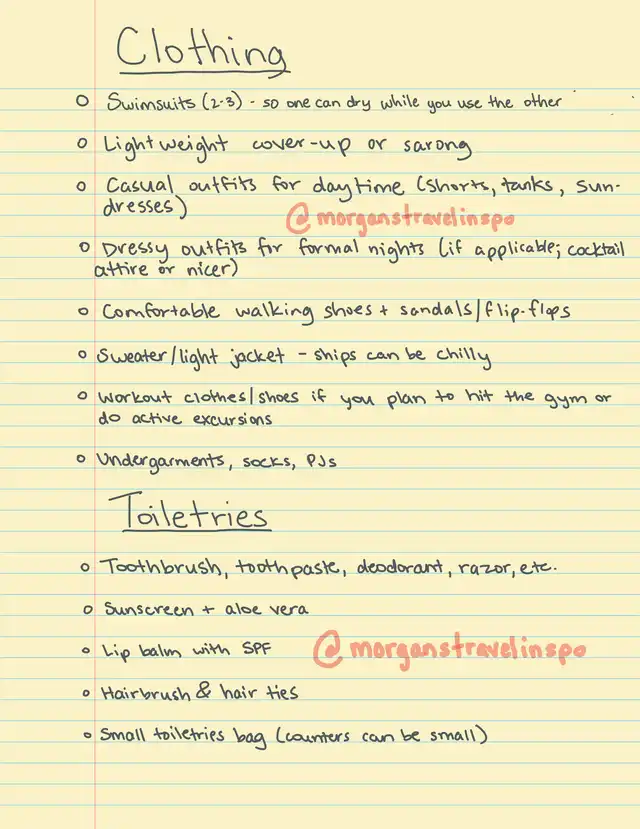 Clothing
o Swimsuits (2-3) - so one can dry while you use the other
o Lightweight cover-up or sarong
o Casual outfits for daytime (shorts, tanks, sun-
dresses)
@morganstravelinspo
o Dressy outfits for formal nights (if applicable; cocktail
attire or nicer)
o Comfortable walking shoes + sandals/flip-flops
o Sweater/light jacket - ships can be chilly
o Workout clothes/shoes if you plan to hit the gym or
do active excursions
o Undergarments, socks, PJs
Toiletries
o Toothbrush, toothpaste, deodorant, razor, etc.
o Sunscreen + aloe vera
o Lip balm with SPF
@morganstravelinspo
o Hairbrush & hair ties
o Small toiletries bag (counters can be small)